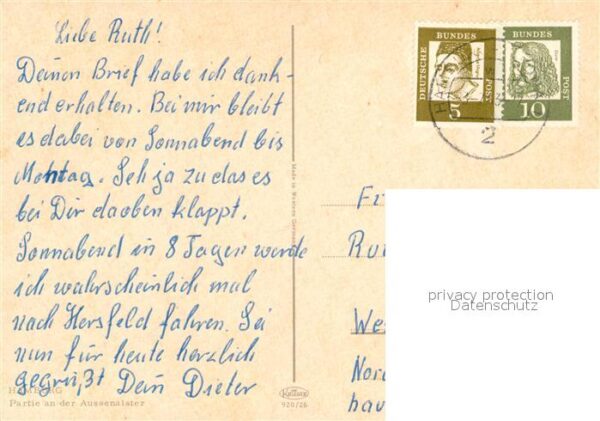 Liebe Ruth!
Deinen Brief habe ich dank-
end erhalten. Bei mir bleibt
es dabei von Sonnabend bis
Montag. Seh ja zu das es
bei Dir daoben klappt.
Sonnabend in 8 Tagen werde
ich wahrscheinlich mal
nach Hersfeld fahren. Sei
nun für heute herzlich
gegrüßt Dein Dieter
HAMBURG
Partie an der Aussenalster
Krüger
920/26
DEUTSCHE BUNDES POST
5
BUNDES POST
10
HAM
2
Ru
We
Nord
hau
privacy protection
Datenschutz